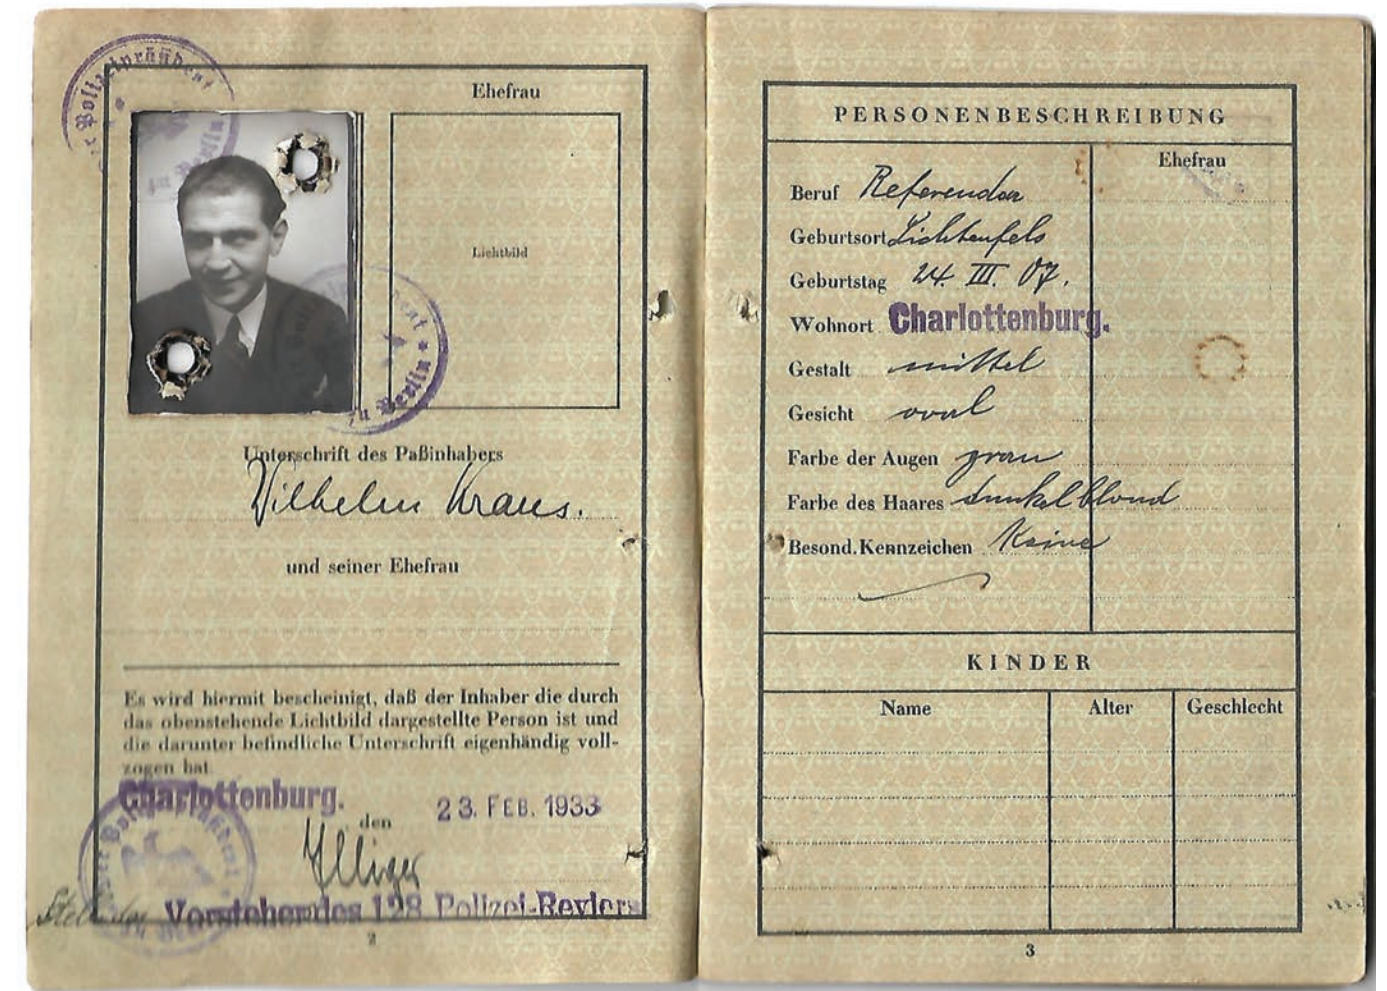 Der Polizeipräsident
zu Berlin
Ehefrau
Lichtbild
Unterschrift des Paßinhabers
Wilhelm Kraus.
und seiner Ehefrau
Es wird hiermit bescheinigt, daß der Inhaber die durch
das obenstehende Lichtbild dargestellte Person ist und
die darunter befindliche Unterschrift eigenhändig voll-
zogen hat.
Charlottenburg.
den 23. FEB. 1933
Vorsteher des 128 Polizei-Reviers
2
PERSONENBESCHREIBUNG
Ehefrau
Beruf Referendar
Geburtsort Lichtenfels
Geburtstag 24. III. 07.
Wohnort Charlottenburg.
Gestalt mittel
Gesicht oval
Farbe der Augen grau
Farbe des Haares dunkelblond
Besond. Kennzeichen Keine
KINDER
Name Alter Geschlecht
3